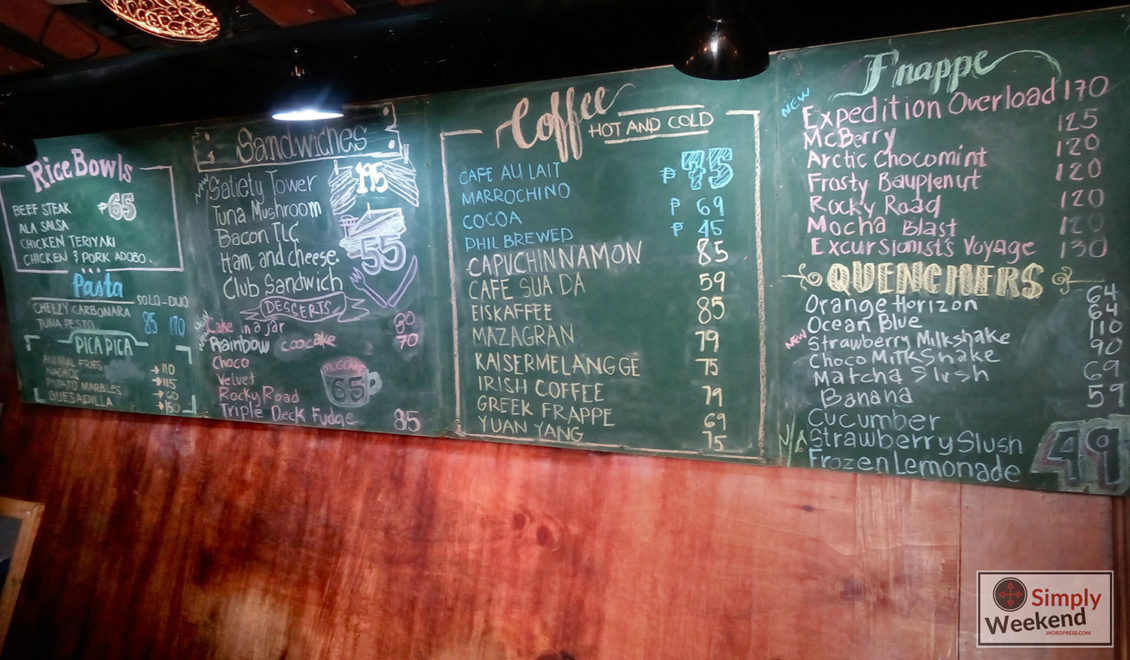 Rice Bowls
BEEF STEAK ₱65
ALA SALSA
CHICKEN TERIYAKI
CHICKEN & PORK ADOBO
Pasta
SOLO-DUO
CHEEZY CARBONARA
TUNA PESTO 85 170
PICA PICA
ANIMAL FRIES → 110
NACHOS → 115
POTATO MARBLES → 60
QUESADILLA → 150
Sandwiches
Satiety Tower 195
Tuna Mushroom
Bacon TLC
Ham and cheese 55
Club Sandwich
DESSERTS
Cake in a jar 80
Rainbow 70
Choco
Velvet
Rocky Road 65
Triple Deck Fudge 85
Coffee
HOT AND COLD
CAFE AU LAIT ₱75
MARROCHINO
COCOA ₱ 69
PHIL BREWED ₱ 45
CAPUCHINNAMON 85
CAFE SUA DA 59
EISKAFFEE 85
MAZAGRAN 79
KAISERMELANGGE 75
IRISH COFFEE 79
GREEK FRAPPE 69
YUAN YANG 75
Frappe
NEW
Expedition Overload 170
McBerry 125
Arctic Chocomint 120
Frosty Bauplenut 120
Rocky Road 120
Mocha Blast 120
Excursionist's Voyage 130
QUENCHERS
Orange Horizon 64
Ocean Blue 64
NEW Strawberry Milkshake 110
Choco Milkshake 90
Matcha Slush 69
Banana 59
Cucumber
N/A Strawberry Slush 49
Frozen Lemonade
Simply
Weekend
.WORDPRESS.COM